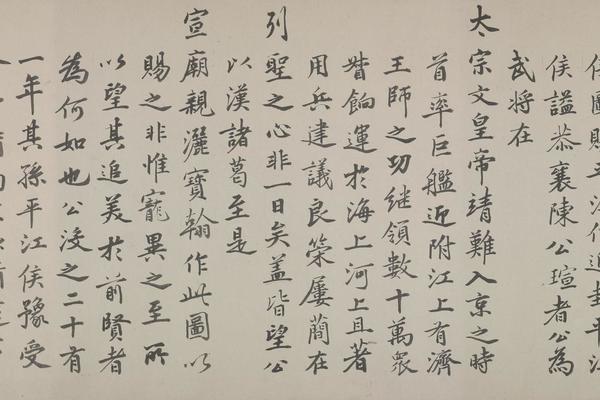 平江伯追封平江
侯謚恭襄陳公瑄者公為
武將在
太宗文皇帝靖難入京之時
首率巨艦近附江上有濟
王師之功继領數十萬衆
督餉運於海上河上且著
用兵建議良策屢蕳在
列聖之心非一日矣盖皆望公
以漢諸葛至是
宣廟親灑寶翰作此圖以
賜之非惟寵異之至所
以望其追美於前賢者
為何如也公没之二十有
一年其孫平江侯豫受